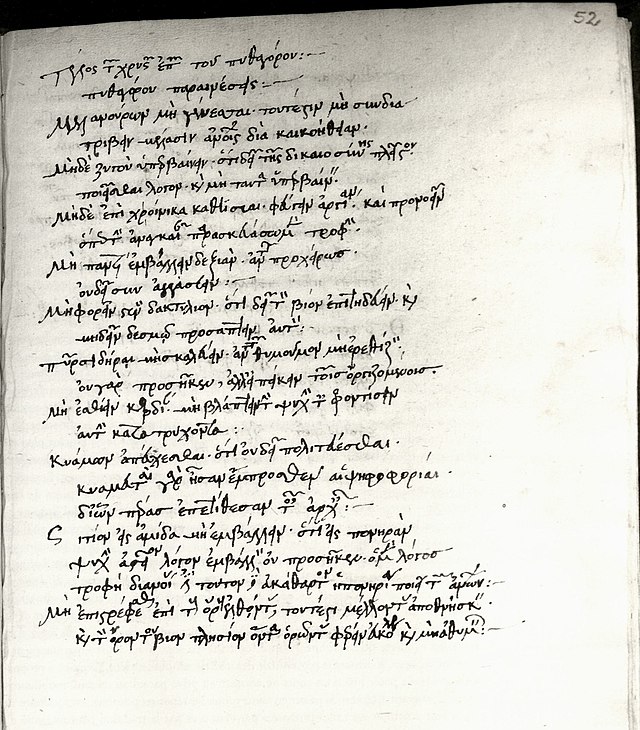 52
Τέλος τῶν χρυσῶν ἐπῶν τοῦ πυθαγόρου:—
πυθαγόρου παραινέσεις:—
Μελανούρων μὴ γεύεσθαι· τουτέστιν μὴ συνδια
τρίβειν μέλασιν ἀνθρώποις διὰ κακοήθειαν·
Μηδὲ ζυγὸν ὑπερβαίνειν· ὅτι δεῖ τῆς δικαιοσύνης πλεῖστον
ποιεῖσθαι λόγον· καὶ μὴ ταύτην ὑπερβαίνειν·
Μηδὲ ἐπὶ χοίνικα καθίσαι· φαγεῖν ἀργόν· καὶ προνοεῖν
ὅπως τὴν ἀναγκαίαν παρασκευάσωμεν τροφήν·
Μὴ παντὶ ἐμβάλλειν δεξιάν· ἀντὶ προχείρως
οὐ δεῖ συναλλάσσειν:—
Μὴ φορεῖν στενὸν δακτύλιον· ὅτι δεῖ τὸν βίον ἐπιτηδεύειν καὶ
μὴ δεῖν δεσμῷ προσάπτειν αὐτόν:
πῦρ σιδήρῳ μὴ σκαλεύειν· ἀντὶ θυμούμενον μὴ ἐρεθίζειν
οὐ γὰρ προσήκει, ἀλλ' ὑπείκειν τοῖς ὀργιζομένοις·
Μὴ ἐσθίειν καρδίαν· μὴ βλάπτειν τὴν ψυχὴν ταῖς φροντίσιν
αὐτὴν κατατρύχοντα:
Κυάμων ἀπέχεσθαι· ὅτι οὐ δεῖ πολιτεύεσθαι·
κυαμευταὶ γὰρ ἦσαν ἔμπροσθεν αἱ ψηφοφορίαι
δι' ὧν πέρας ἐπετίθεσαν ταῖς ἀρχαῖς:—
Σιτίον εἰς ἀμίδα μὴ ἐμβάλλειν· ὅτι εἰς πονηρὰν
ψυχὴν ἀστεῖον λόγον ἐμβάλλειν οὐ προσήκει· ὁ μὲν λόγος
τροφὴ διανοίας· τοῦτον δὲ ἀκάθαρτον ἡ πονηρία ποιεῖ τῶν ἀνθρώπων:—
Μὴ ἐπιστρέφεσθαι ἐπὶ τοὺς ὅρους ἐλθόντας, τουτέστι μέλλοντας ἀποθνήσκειν
καὶ τὸν ὅρον τοῦ βίου πλησίον ὄντα ὁρῶντας φέρειν εὐκόλως καὶ μὴ ἀθυμεῖν:—